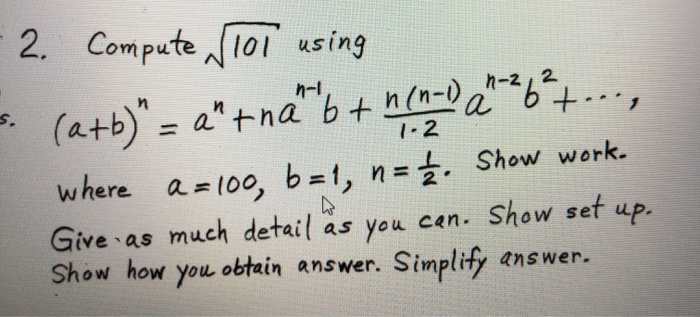 2. Compute √101 using
s. (a+b)ⁿ = aⁿ + naⁿ⁻¹b + n(n-1)/1·2 aⁿ⁻²b² + ···,
where a = 100, b = 1, n = 1/2. Show work.
Give as much detail as you can. Show set up.
Show how you obtain answer. Simplify answer.